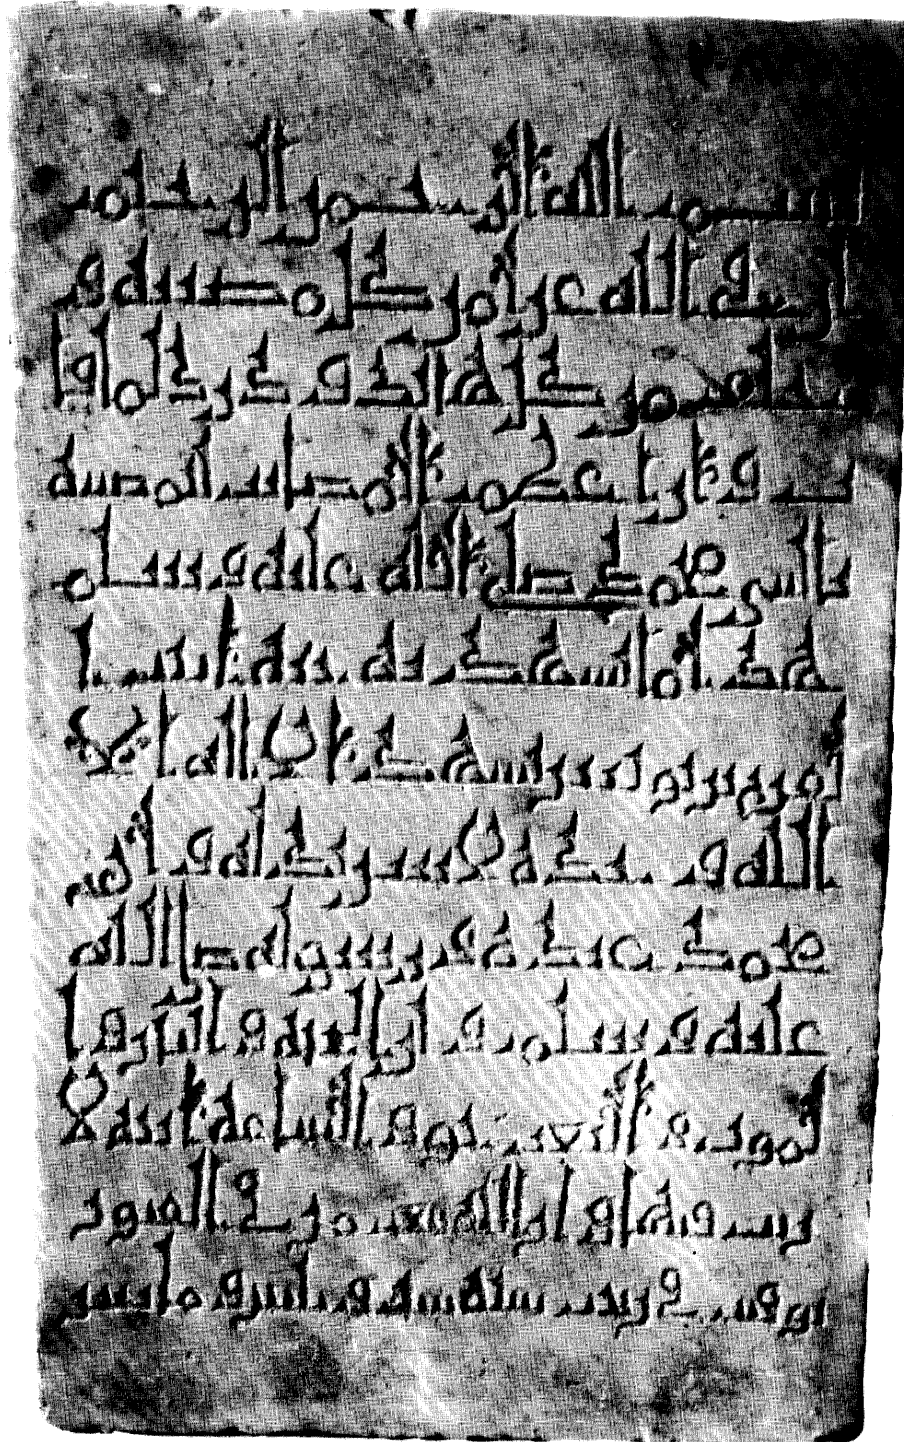 بسم الله الرحمن الرحيم
ان في الله عزا من كل مصيبة و
خلفا من كل هالك ودرك لما فا
ت وان اعظم المصايب المصيبة
بالنبي محمد صلى الله عليه وسلم
هذا ما تشهد به ابنت ا
تشهد الا اله الا
الله وحده لا شريك له وان
محمد عبده ورسوله صلى الله
عليه وسلم وان الجنة والنار وا
لموت والبعث حق والساعة اتية لا
ريب فيها وان الله يبعث من في القبور
توفيت في سنة ومايتين